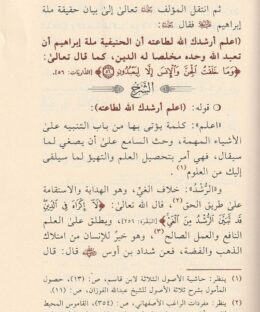 ثم انتقل المؤلف تعالى إلى بيان حقيقة ملة
إبراهيم ﷺ فقال:
(اعلم أرشدك الله لطاعته أن الحنيفية ملة إبراهيم أن
تعبد الله وحده مخلصا له الدين، كما قال تعالى:
﴿وَمَا خَلَقْتُ الْجِنَّ وَالْإِنسَ إِلَّا لِيَعْبُدُونِ﴾ [الذاريات: ٥٦].
الشرح
قوله: (اعلم أرشدك الله لطاعته):
«اعلم»: كلمة يؤتى بها من باب التنبيه على
الأشياء المهمة، وحث السامع على أن يصغي إلى ما
سيقال، فهي أمر بتحصيل العلم والتهيؤ لما سيلقى
إليه من العلوم(١).
و«الرُّشْدُ»: خلاف الغيّ، وهو الهداية والاستقامة
على طريق الحق(٢)، قال تعالى: ﴿لَا إِكْرَاهَ فِي الدِّينِ
قَد تَّبَيَّنَ الرُّشْدُ مِنَ الْغَيِّ﴾ [البقرة: ٢٥٦]، ويطلق على العلم
النافع والعمل الصالح(٣)، وهو خيرٌ للإنسان من امتلاك
الذهب والفضة، فعن شداد بن أوس قال: قال
(١) ينظر: حاشية الأصول الثلاثة لابن قاسم، ص: (١٣)، حصول
المأمول بشرح ثلاثة أصول للشيخ عبدالله الفوزان، ص: (١١).
(٢) ينظر: مفردات الراغب الأصفهاني، ص: (٣٥٤)، القاموس المحيط